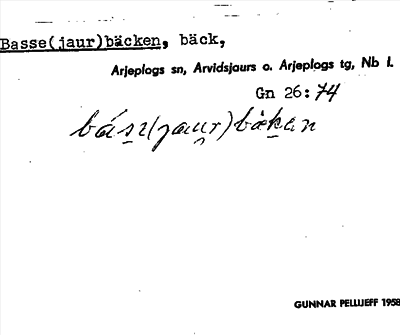 Basse(jaur)bäcken, bäck,
Arjeplogs sn, Arvidsjaurs o. Arjeplogs tg, Nb l.
Gn 26:74
GUNNAR PELLIJEFF 1958